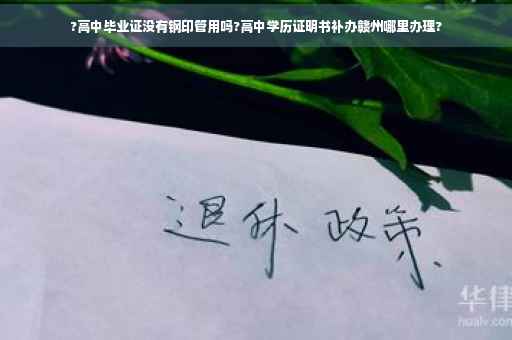 ?高中毕业证没有钢印管用吗?高中学历证明书补办赣州哪里办理?
退休 政策
华律
hualv.com